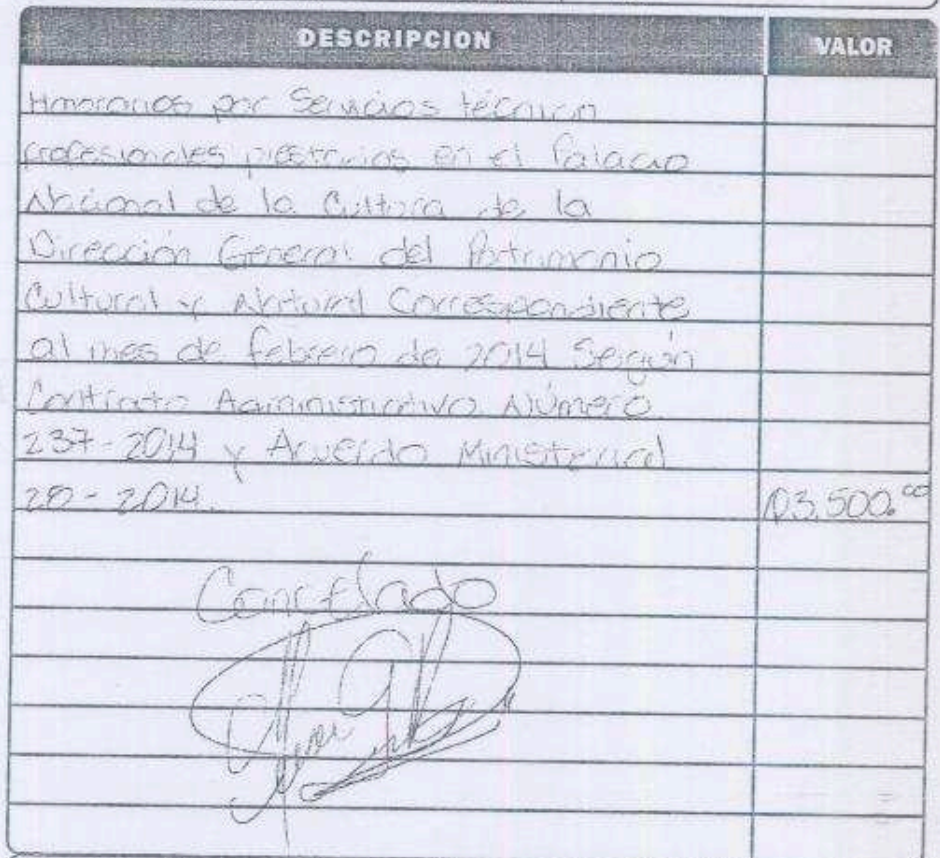 DESCRIPCION VALOR
Honorarios por Servicios técnico
profesionales prestados en el Palacio
Nacional de la Cultura de la
Dirección General del Patrimonio
Cultural y Natural Correspondiente
al mes de febrero de 2014 Según
Contrato Administrativo Número
237-2014 y Acuerdo Ministerial
20-2014. Q3,500.00
Cancelado